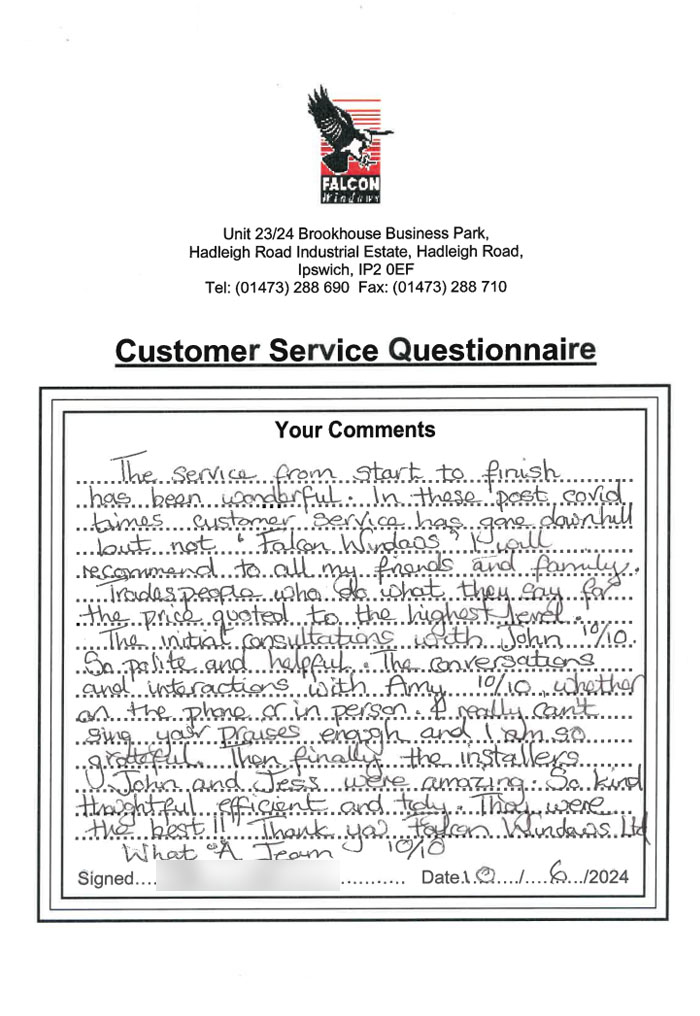 FALCON
Windows
Unit 23/24 Brookhouse Business Park,
Hadleigh Road Industrial Estate, Hadleigh Road,
Ipswich, IP2 0EF
Tel: (01473) 288 690 Fax: (01473) 288 710
Customer Service Questionnaire
Your Comments
The service from start to finish
has been wonderful. In these post covid
times customer service has gone downhill
but not "Falcon Windows" I will
recommend to all my friends and family.
Tradespeople who do what they say for
the price quoted to the highest level.
The initial consultations with John 10/10.
So polite and helpful. The conversations
and interactions with Amy 10/10, whether
on the phone or in person. I really can't
sing your praises enough and I am so
grateful. Then finally the installers
John and Jess were amazing. So kind
thoughtful efficient and tidy. They were
the best!! Thank you Falcon Windows Ltd
What A Team 10/10
Signed.... ............ Date.10.../....6.../2024